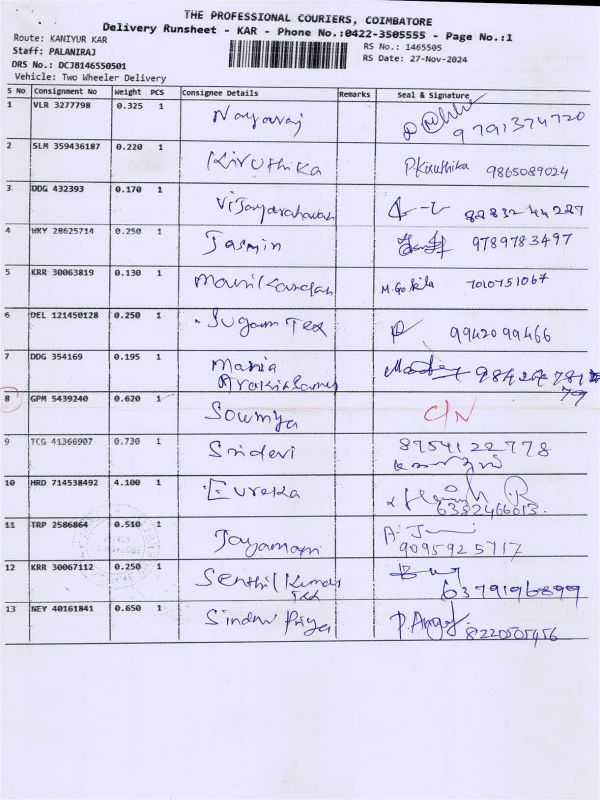 THE PROFESSIONAL COURIERS, COIMBATORE
Delivery Runsheet - KAR - Phone No.:0422-3505555 - Page No.:1
Route: KANIYUR KAR
RS No.: 1465505
Staff: PALANIRAJ
RS Date: 27-Nov-2024
DRS No.: DCJ8146550501
Vehicle: Two Wheeler Delivery
S No Consignment No Weight PCS Consignee Details Remarks Seal & Signature
1 VLR 3277798 0.325 1 Nagaraj 9791374720
2 SLM 359436187 0.220 1 Kiruthika P.Kiruthika 9865089024
3 DDG 432393 0.170 1 Vijayaraghavan
4 HKY 28625714 0.250 1 Jasmin 9789783497
5 KRR 30063819 0.130 1 Manikandan M.Gokila 7010751067
6 DEL 121450128 0.250 1 Sugam Tex 9942099466
7 DDG 354169 0.195 1 Maria
8 GPM 5439240 0.620 1 Sowmya C/N
9 TCG 41366907 0.730 1 Sridevi 8754122778
10 HRD 714538492 4.100 1 Eureka 6382466013.
11 TRP 2586864 0.510 1 Jayamani 9095925717
12 KRR 30067112 0.250 1 Senthil Kumar Tex 6379196899
13 NEY 40161841 0.650 1 Sindhu Priya 8220505456